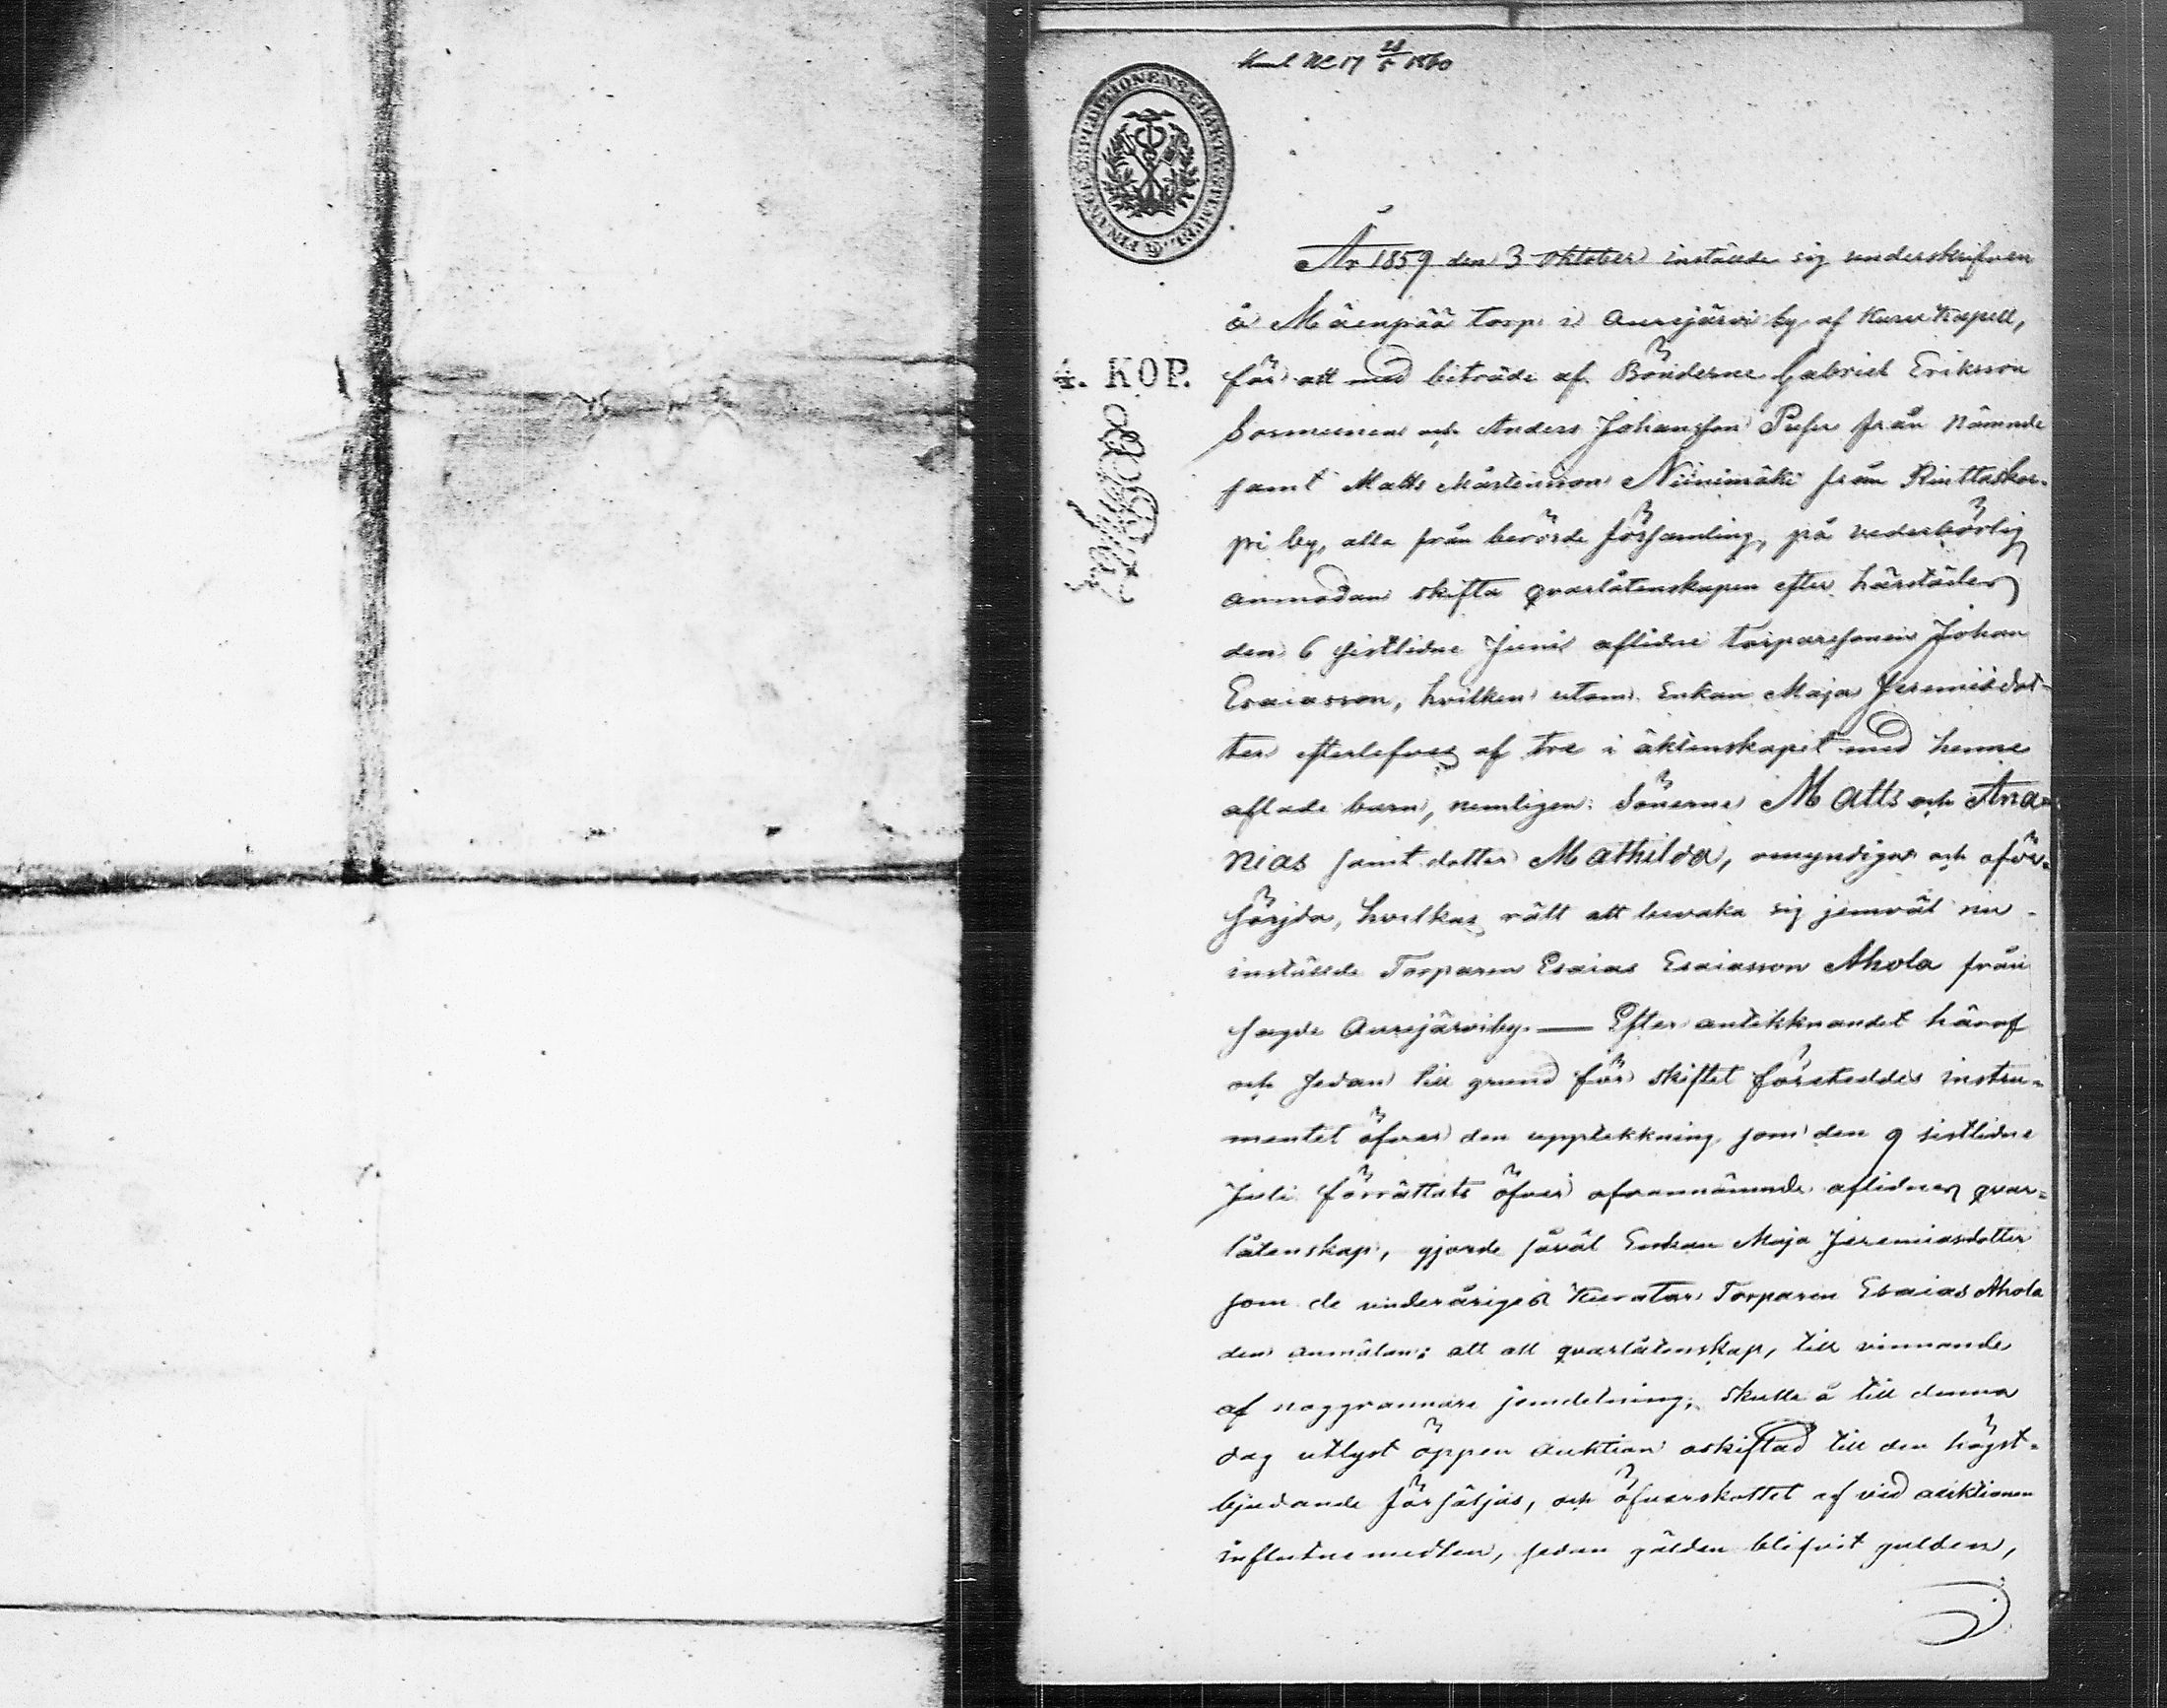 Kml No 17 28/5 1860
FINANCE EXPEDITIONENS CHARTÆ
4. KOP.
År 1859 den 3 Oktober instälde sig underskrifven
å Mäenpää torp i Aurejärvi by af Kuru Kapell,
för att med biträde af Bönderne Gabriel Eriksson
Sormunen och Anders Johansson Pufu från nämnde
samt Matts Mårtensson Niinimäki från Riuttaskor-
pi by, alla från berörde församling, på vederbörlig
anmodan skifta qvarlåtenskapen efter härstädes
den 6 sistlidne Junii aflidne torparesonen Johan
Esaiasson, hvilken utom Enkan Maja Jeremisdot-
ter efterlefves af tre i äktenskapet med henne
aflade barn, nemligen: Sönerne Matts och Ana-
nias samt dotter Mathilda, omyndiga och oför-
sörjda, hvilkas rätt att bevaka sig jemväl nu
instälde Torparen Esaias Esaiasson Ahola från
sagde Aurejärviby. — Efter antekknandet häraf
och sedan till grund för skiftet företeddes instru-
mentet öfver den upptekkning som den 9 sistlidne
Juli förrättats öfver ofvannämnde aflidnes qvar-
låtenskap, gjorde såväl Enkan Maja Jeremiasdotter
som de underårigas Kurator Torparen Esaias Ahola
den anmälan: att all qvarlåtenskap, till vinnande
af noggrannare jemdelning, skulle å till denna
dag utlyst öppen auktion oskiftad till den högst-
bjudande försäljas, och öfverskottet af vid auktionen
influtne medlen, sedan gälden blifvit gulden,